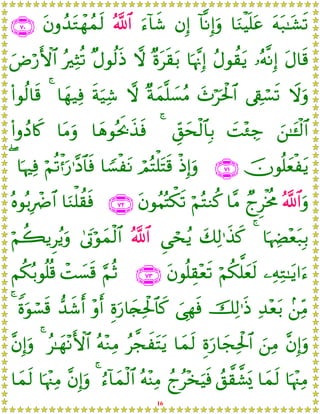 تَشَـٰبَهَ عَلَيْنَا وَإِنَّآ إِن شَآءَ ٱللَّهُ لَمُهْتَدُونَ ﴿٧٠﴾
قَالَ إِنَّهُۥ يَقُولُ إِنَّهَا بَقَرَةٌ لَّا ذَلُولٌ تُثِيرُ ٱلْأَرْضَ
وَلَا تَسْقِى ٱلْحَرْثَ مُسَلَّمَةٌ لَّا شِيَةَ فِيهَا ۚ قَالُوا۟
ٱلْـَٔـٰنَ جِئْتَ بِٱلْحَقِّ ۚ فَذَبَحُوهَا وَمَا كَادُوا۟
يَفْعَلُونَ ﴿٧١﴾ وَإِذْ قَتَلْتُمْ نَفْسًا فَٱدَّٰرَْٰٔتُمْ فِيهَا ۖ
وَٱللَّهُ مُخْرِجٌ مَّا كُنتُمْ تَكْتُمُونَ ﴿٧٢﴾ فَقُلْنَا ٱضْرِبُوهُ
بِبَعْضِهَا ۚ كَذَٰلِكَ يُحْىِ ٱللَّهُ ٱلْمَوْتَىٰ وَيُرِيكُمْ
ءَايَـٰتِهِۦ لَعَلَّكُمْ تَعْقِلُونَ ﴿٧٣﴾ ثُمَّ قَسَتْ قُلُوبُكُم
مِّنۢ بَعْدِ ذَٰلِكَ فَهِىَ كَٱلْحِجَارَةِ أَوْ أَشَدُّ قَسْوَةً ۚ
وَإِنَّ مِنَ ٱلْحِجَارَةِ لَمَا يَتَفَجَّرُ مِنْهُ ٱلْأَنْهَـٰرُ ۚ وَإِنَّ
مِنْهَا لَمَا يَشَّقَّقُ فَيَخْرُجُ مِنْهُ ٱلْمَآءُ ۚ وَإِنَّ مِنْهَا لَمَا
16